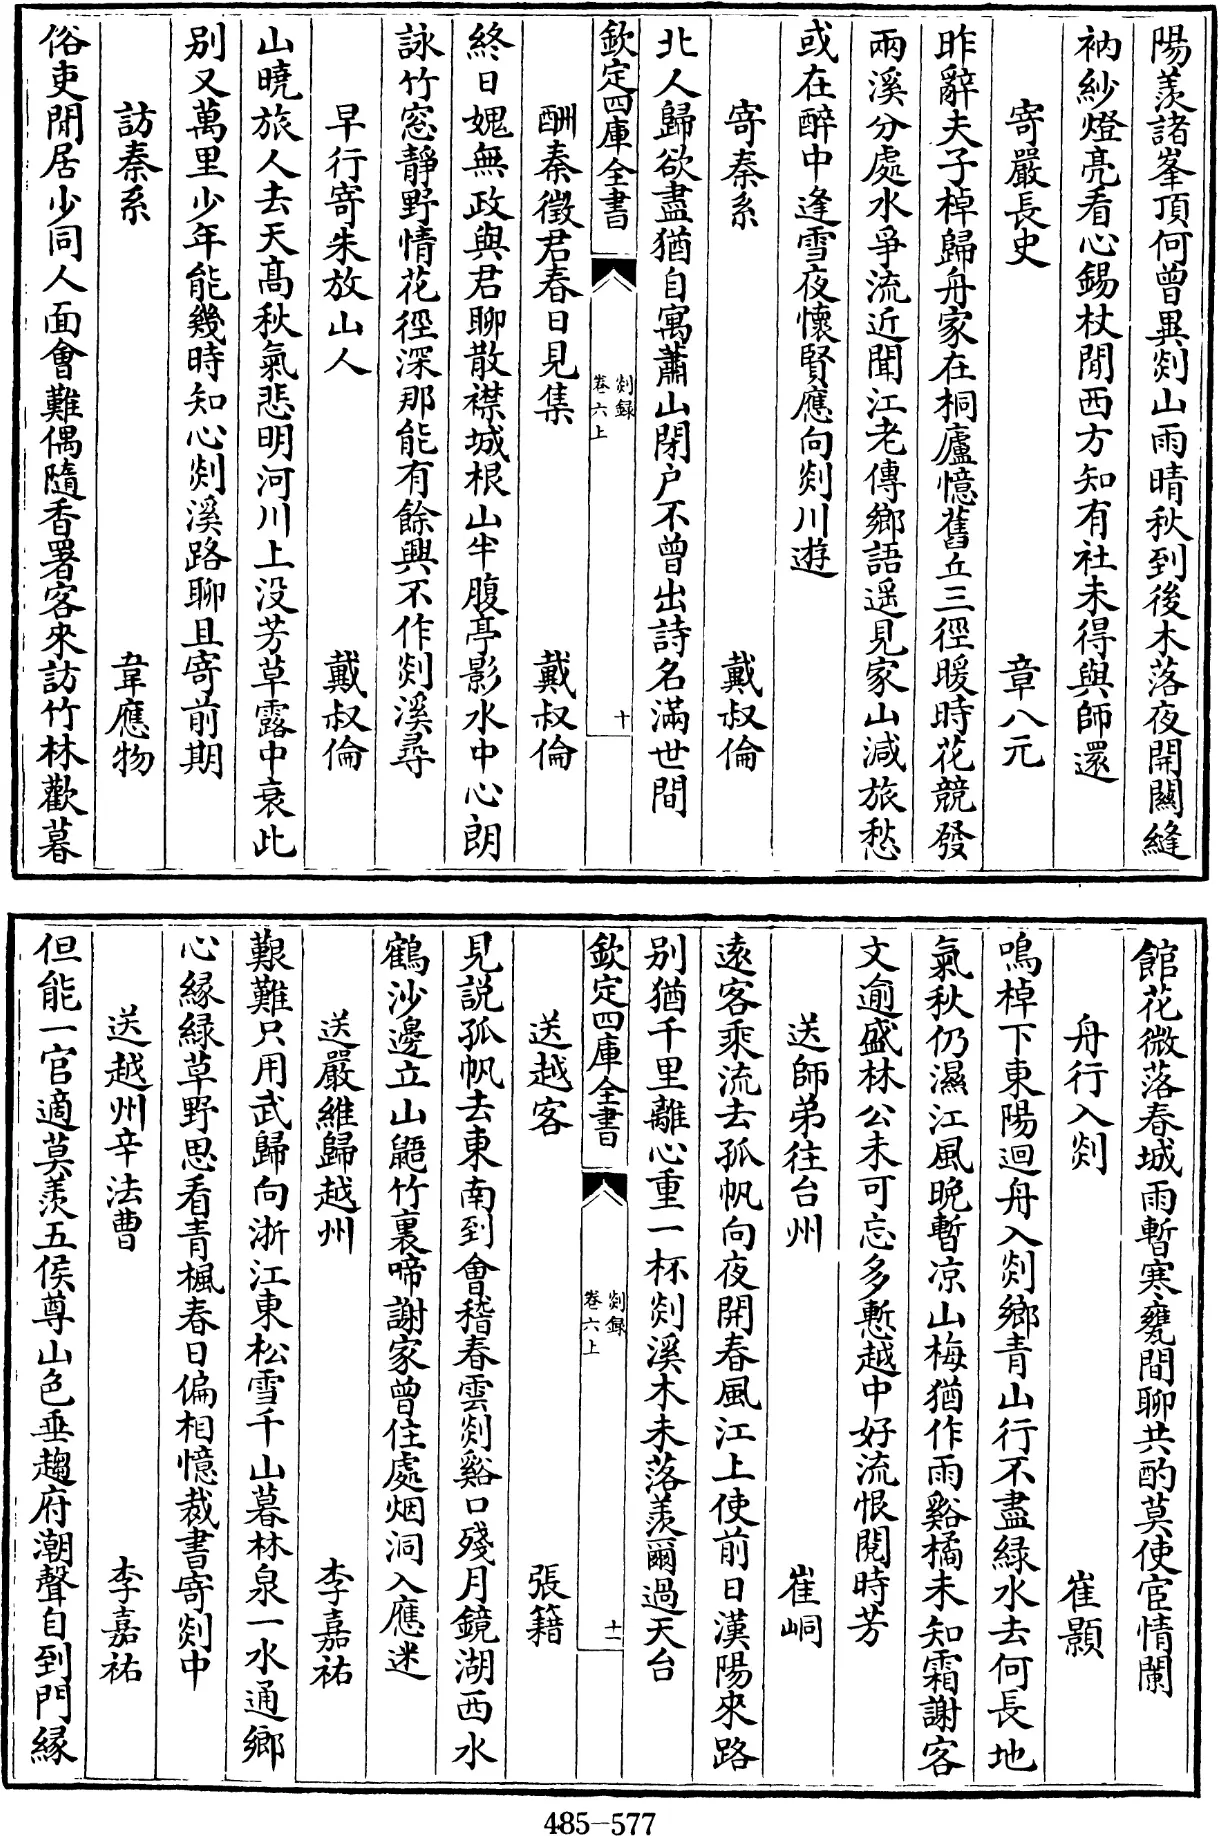 陽羨諸峯頂何曾異剡山雨晴秋到後木落夜開關縫
衲紗燈亮看心錫杖閒西方知有社未得與師還
寄嚴長史 章八元
昨辭夫子棹歸舟家在桐廬憶舊丘三徑暖時花競發
兩溪分處水爭流近聞江老傳鄉語遥見家山減旅愁
或在醉中逢雪夜懷賢應向剡川遊
寄秦系 戴叔倫
北人歸欲盡猶自寓蕭山閉户不曾出詩名滿世間
欽定四庫全書 剡録 卷六上 十
酬秦徵君春日見集 戴叔倫
終日媿無政與君聊散襟城根山半腹亭影水中心朗
詠竹窓靜野情花徑深那能有餘興不作剡溪尋
早行寄朱放山人 戴叔倫
山曉旅人去天髙秋氣悲明河川上没芳草露中衰此
别又萬里少年能幾時知心剡溪路聊且寄前期
訪秦系 韋應物
俗吏閒居少同人面會難偶隨香署客來訪竹林歡暮
館花微落春城雨暫寒甕間聊共酌莫使宦情闌
舟行入剡 崔顥
鳴棹下東陽迴舟入剡鄉青山行不盡緑水去何長地
氣秋仍濕江風晚暫凉山梅猶作雨谿橘未知霜謝客
文逾盛林公未可忘多慙越中好流恨閱時芳
送師弟往台州 崔峒
遠客乘流去孤帆向夜開春風江上使前日漢陽來路
别猶千里離心重一杯剡溪木未落羨爾過天台
欽定四庫全書 剡録 卷六上 十一
送越客 張籍
見説孤帆去東南到會稽春雲剡谿口殘月鏡湖西水
鶴沙邊立山鼯竹裏啼謝家曾住處烟洞入應迷
送嚴維歸越州 李嘉祐
艱難只用武歸向浙江東松雪千山暮林泉一水通鄉
心緣緑草野思看青楓春日偏相憶裁書寄剡中
送越州辛法曹 李嘉祐
但能一官適莫羨五侯尊山色垂趨府潮聲自到門緣
485-577